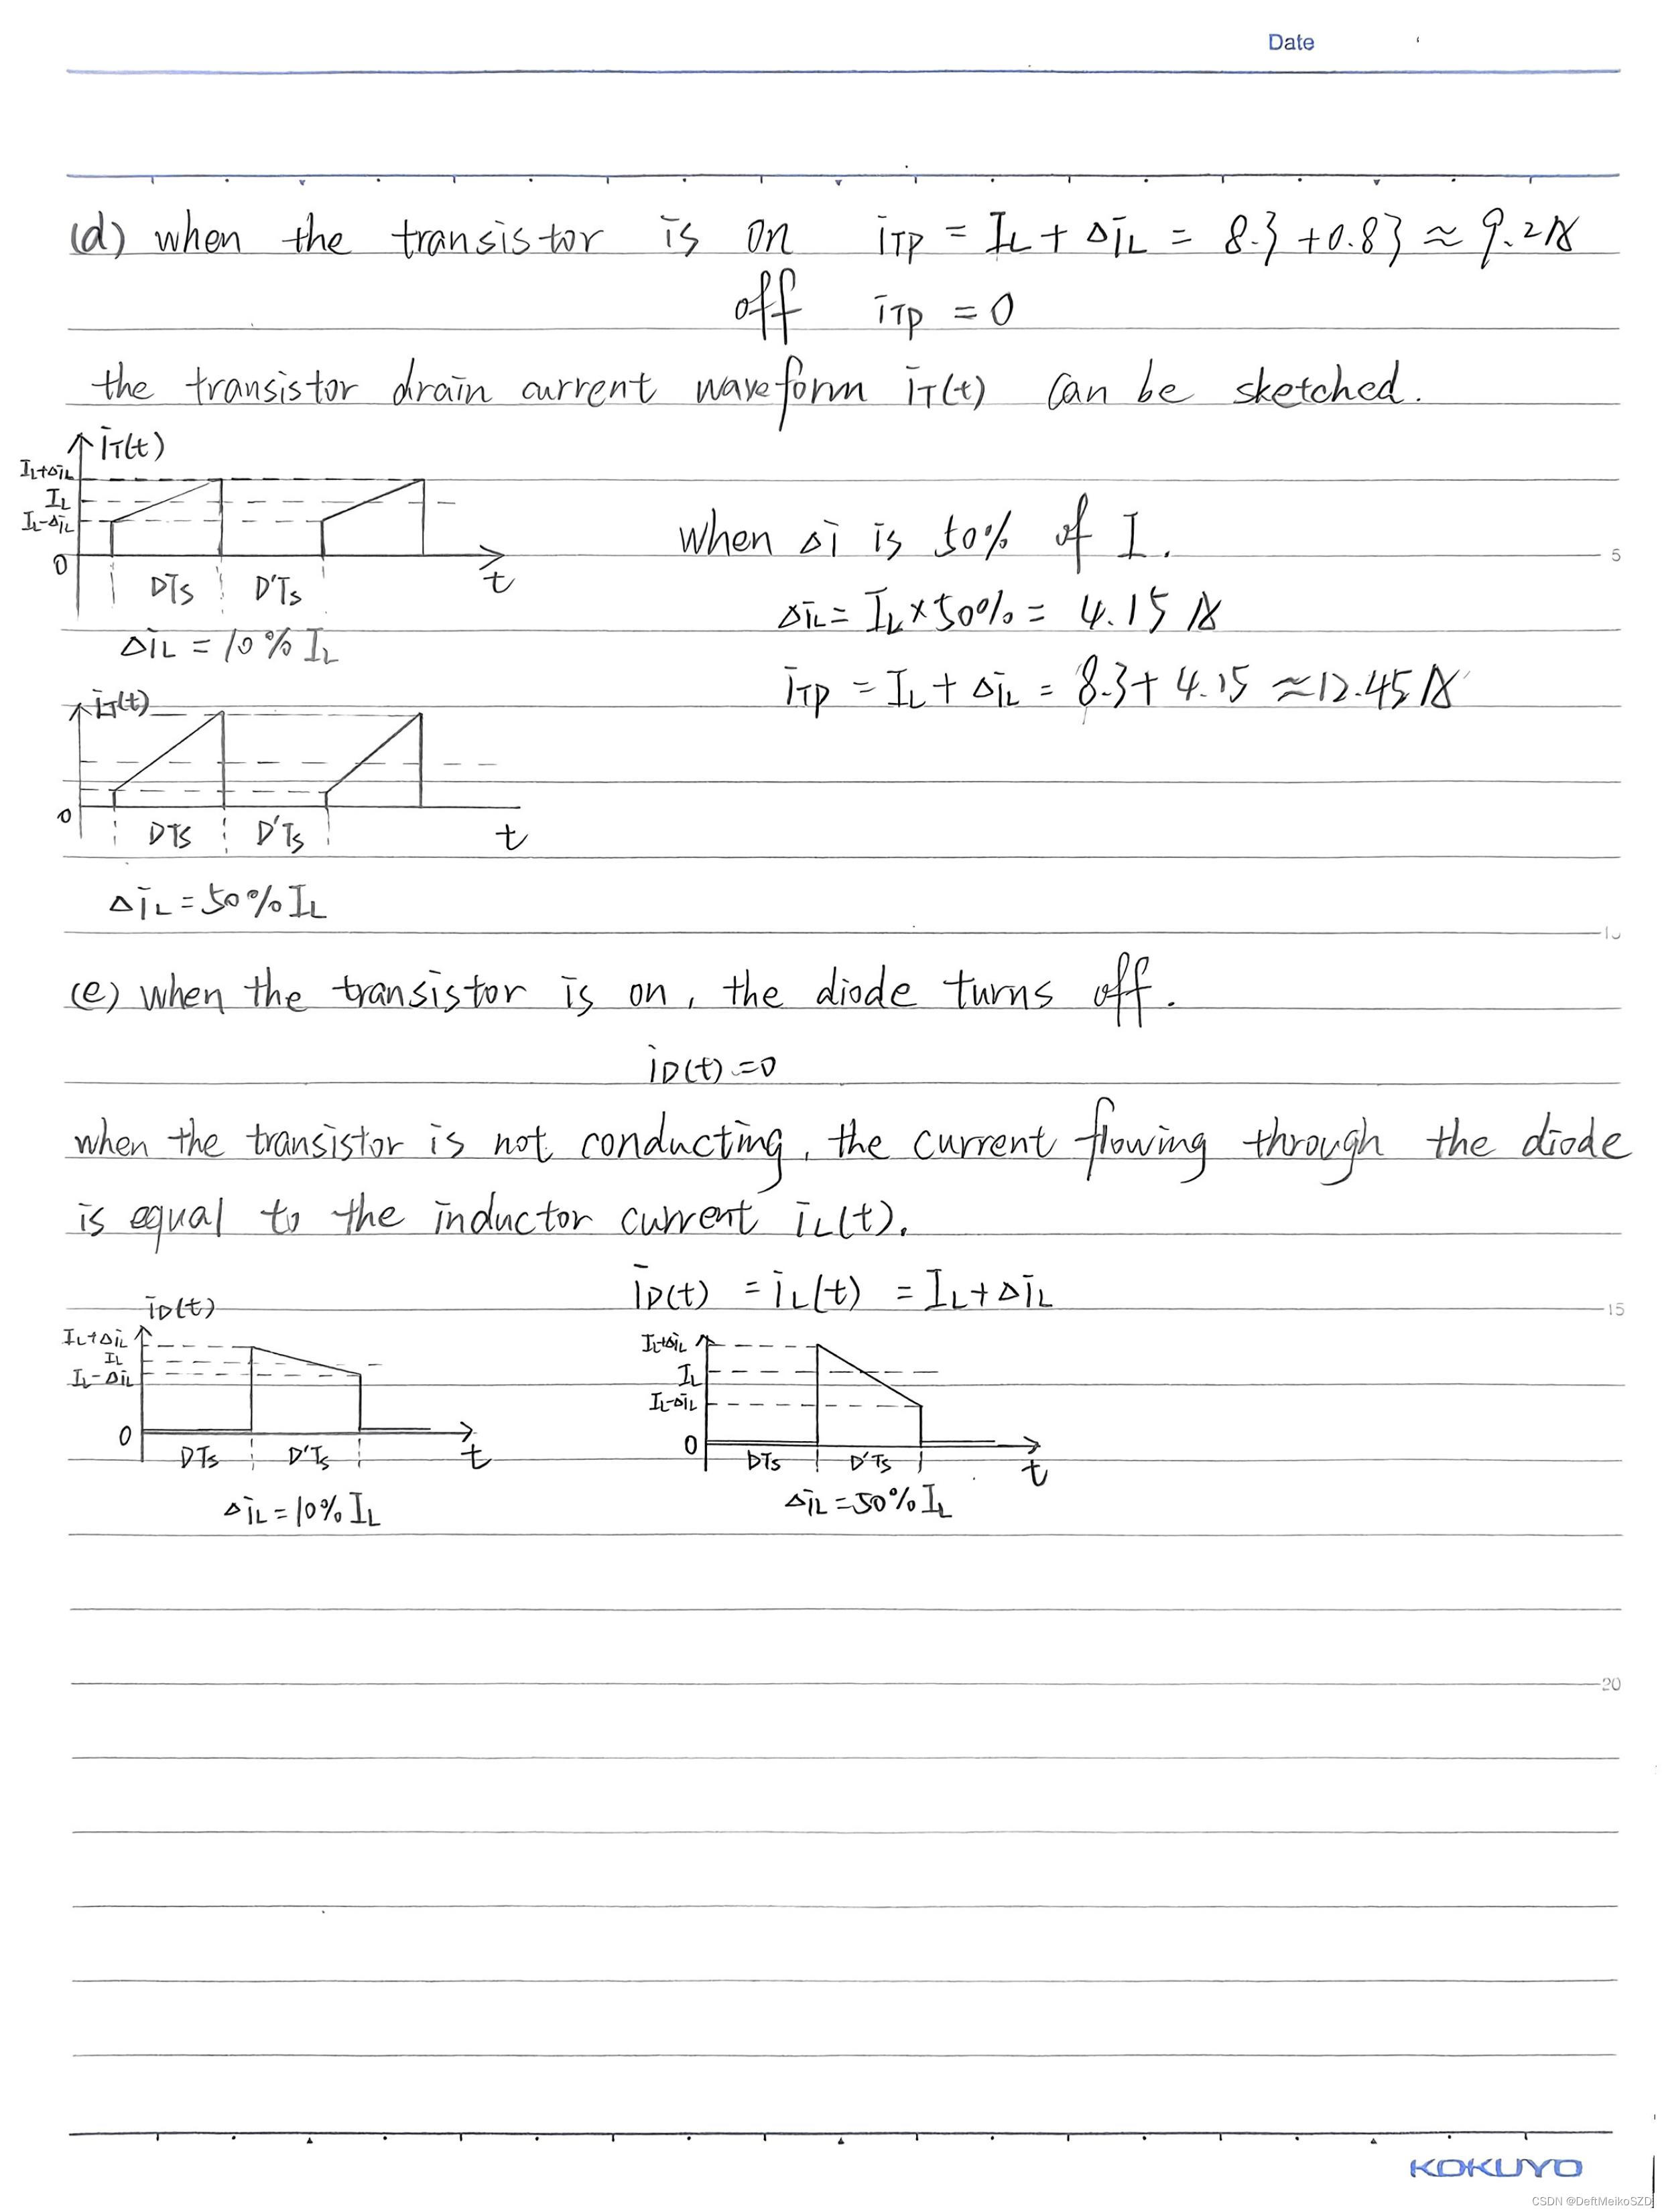 Date
(d) when the transistor is on iTP = IL + ΔiL = 8.3 + 0.83 ≈ 9.2A
off iTP = 0
the transistor drain current waveform iT(t) can be sketched.
iT(t)
IL+ΔiL
IL
IL-ΔiL
0
t
DTs D'Ts
ΔiL = 10% IL
When Δi is 50% of I.
5
ΔiL = IL×50% = 4.15 A
iTP = IL + ΔiL = 8.3 + 4.15 ≈ 12.45 A
iT(t)
0
DTs D'Ts t
ΔiL = 50% IL
10
(e) when the transistor is on, the diode turns off.
iD(t) = 0
when the transistor is not conducting, the current flowing through the diode
is equal to the inductor current iL(t).
iD(t) = iL(t) = IL + ΔiL
15
iD(t)
IL+ΔiL
IL
IL-ΔiL
0
DTs D'Ts t
ΔiL = 10% IL
IL+ΔiL
IL
IL-ΔiL
0
DTs D'Ts t
ΔiL = 50% IL
20
KOKUYO
CSDN @DeftMeikoSZD